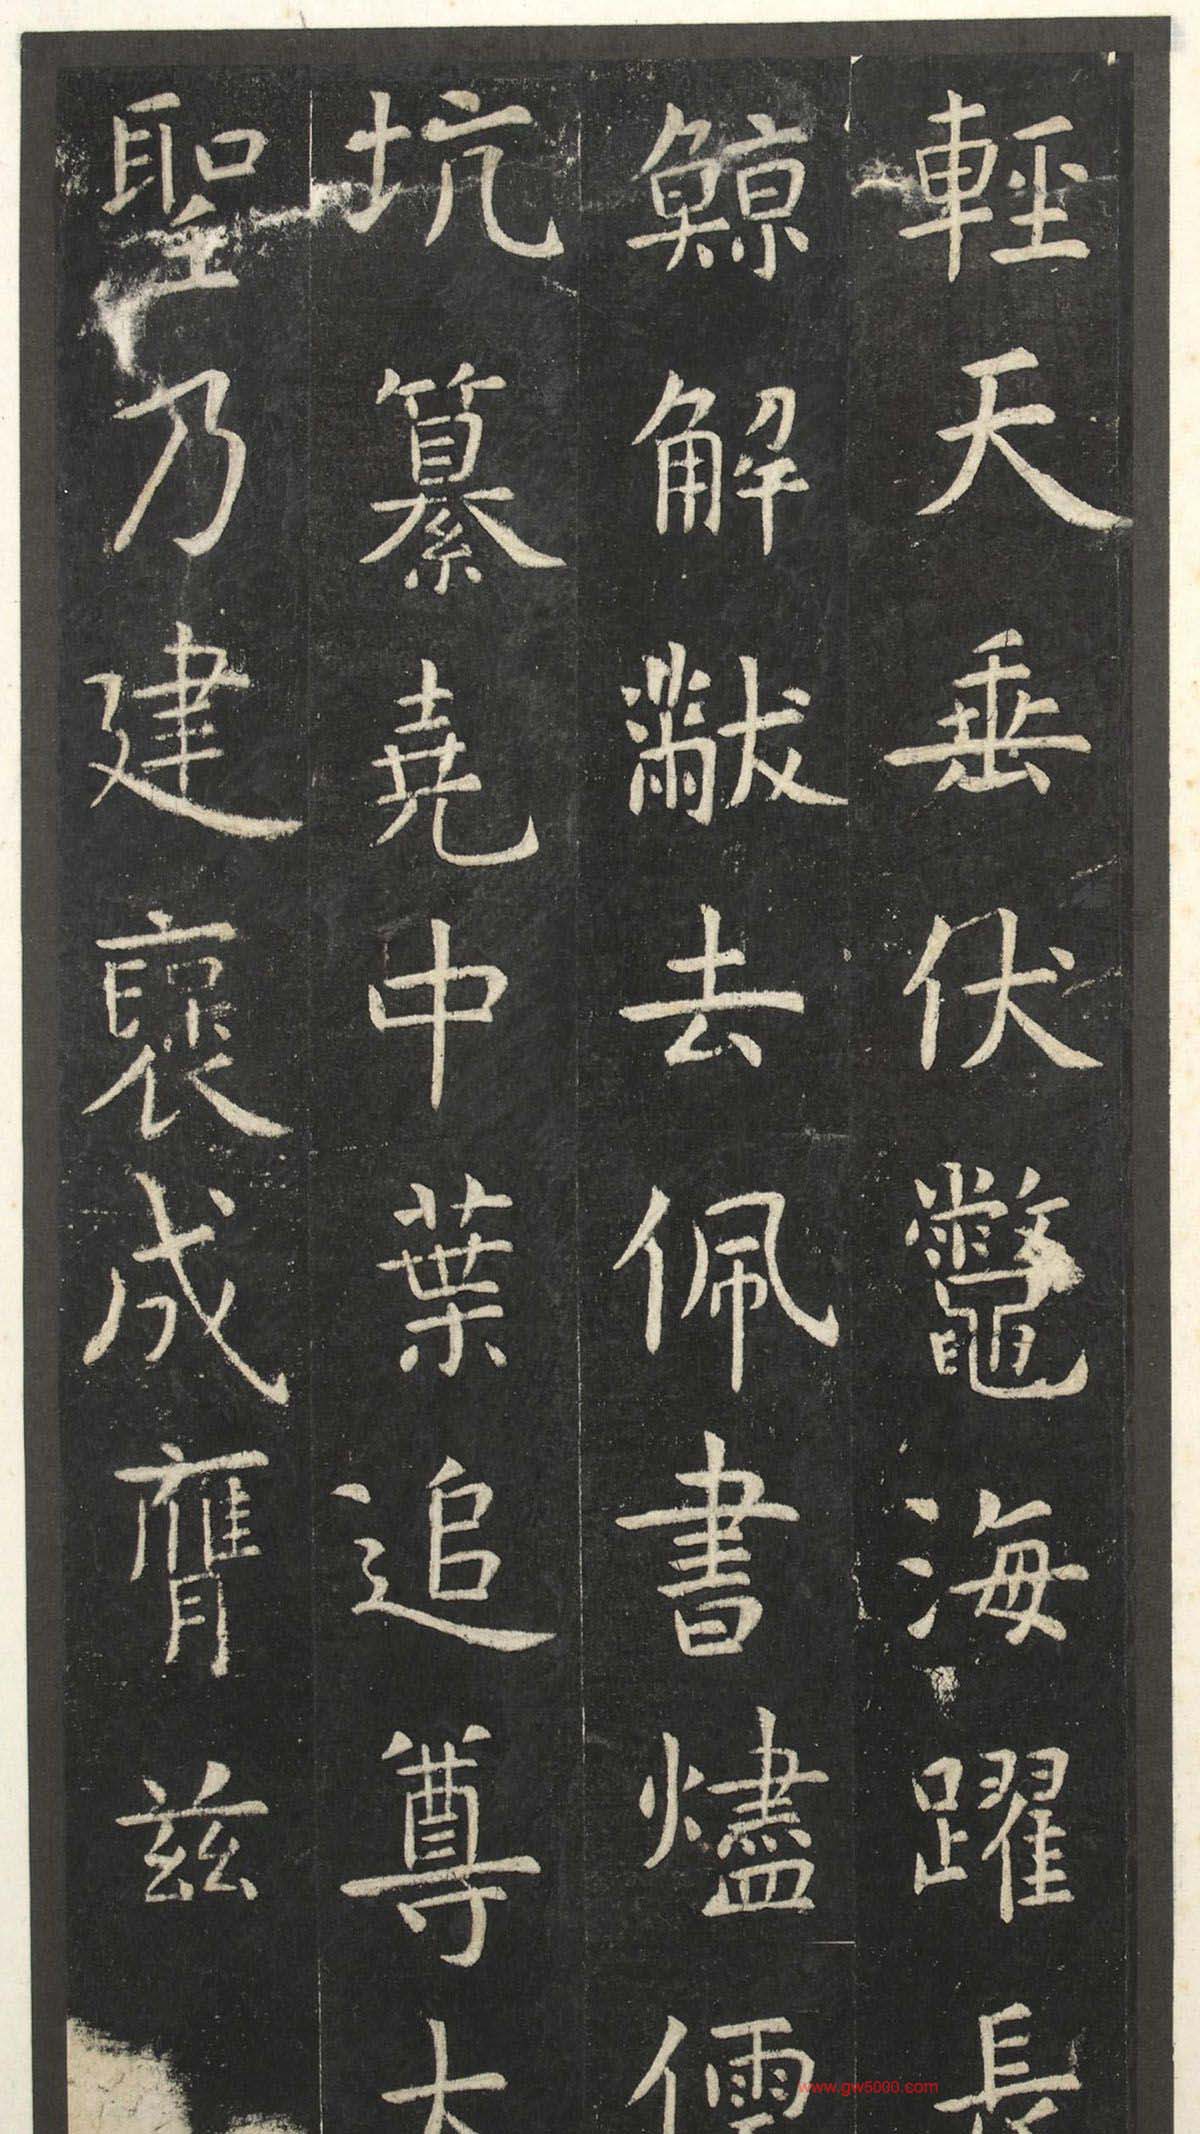 輕天垂伏鼈海躍長
鯨解黻去佩書燼儒
坑纂堯中葉追尊大
聖乃建褒成膺茲
www.gw5000.com